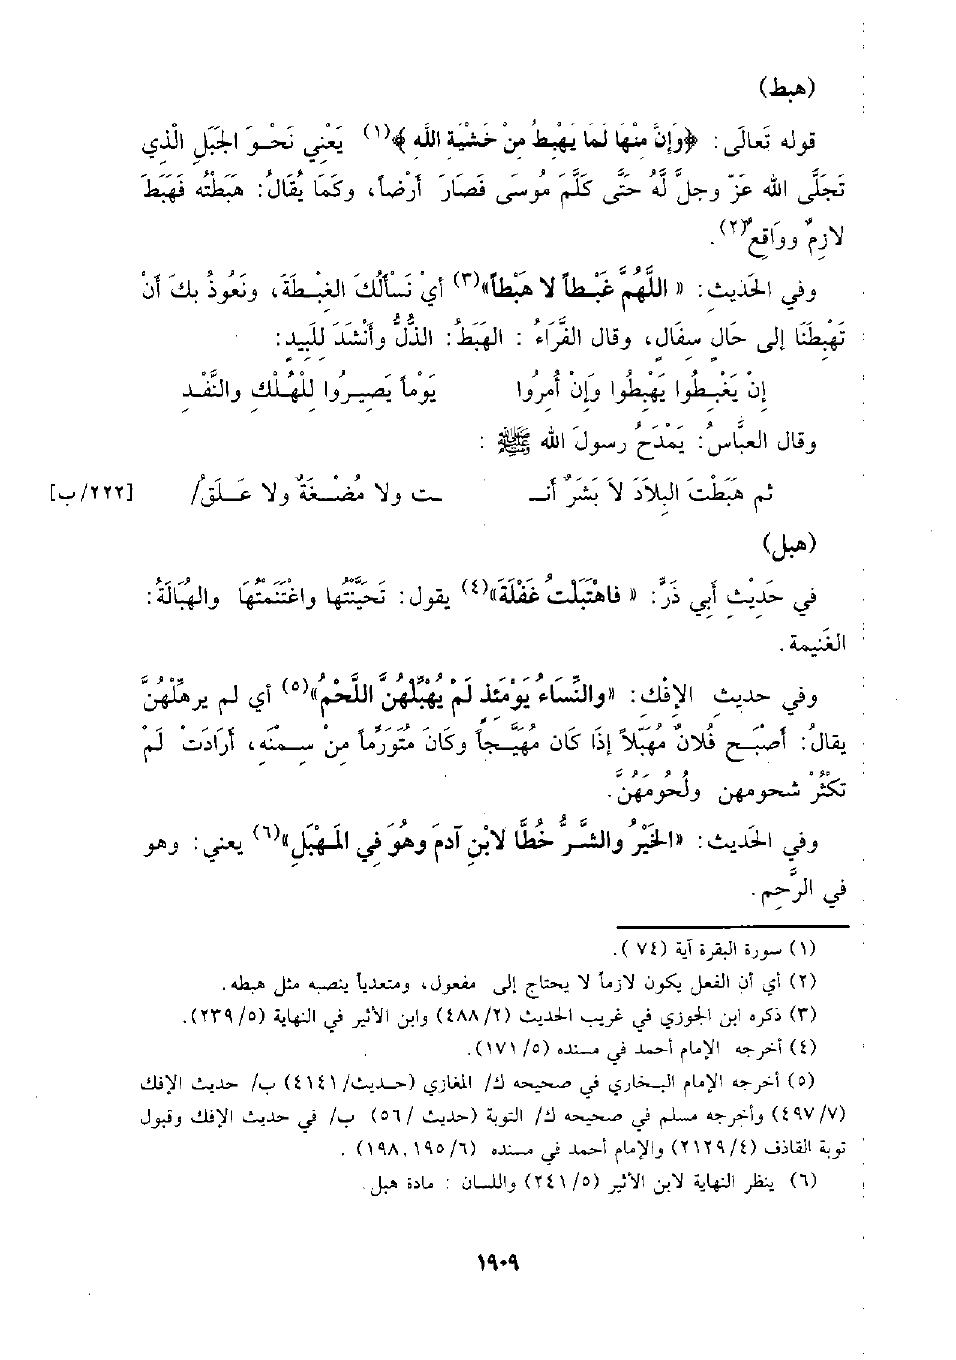 (هبط)
قوله تَعالَى: ﴿وَإِنَّ مِنْهَا لَمَا يَهْبِطُ مِنْ خَشْيَةِ اللَّهِ﴾(١) يَعْنِي نَحْوَ الجَبَلِ الْذِي
تَجَلَّى الله عَزّ وجلَّ لَهُ حَتَّى كَلَّمَ مُوسَى فَصَارَ أَرْضاً، وكَمَا يُقَالُ: هَبَطْتُه فَهَبَطَ
لازِمٌ ووَاقِعٌ(٢).
وفي الحَديثِ: «اللَّهُمَّ غَبْطاً لا هَبْطاً»(٣) أيْ نَسْأَلُكَ الغِبْطَةَ، ونَعُوذُ بكَ أَنْ
تَهْبِطَنَا إلى حَالِ سِفَالٍ، وقال الفَرَّاءُ : الهَبَطُ: الذُّلُّ وأَنْشَدَ لِلَبِيدٍ:
إِنْ يَغْبِطُوا يَهْبِطُوا وَإِنْ أُمِرُوا يَوْماً يَصِيرُوا لِلْهُلْكِ والنَّفْدِ
وقال العبَّاسُ: يَمْدَحُ رسولَ الله ﷺ :
ثم هَبَطْتَ البِلاَدَ لاَ بَشَرٌ أنْـ ـت ولا مُضْغَةٌ ولا عَلَقُ/ [٢٢٢/ب]
(هبل)
في حَدِيْثِ أَبِي ذَرٍّ: «فاهْتَبَلْتُ غَفْلَةَ»(٤) يقول: تَحَيَّنْتُها واغْتَنَمْتُها والهُبَالَةُ:
الغَنِيمة.
وفي حديثِ الإفْكِ: «والنِّسَاءُ يَوْمَئِذٍ لَمْ يُهَبِّلْهُنَّ اللَّحْمُ»(٥) أي لم يرهِّلْهُنَّ
يقالُ: أَصْبَح فُلانٌ مُهَبَّلاً إذَا كَان مُهَيَّجاً وكَانَ مُتَوَرِّماً مِنْ سِمَنِهِ، أرَادَتْ لَمْ
تكْثُرْ شُحومهن ولُحُومَهُنَّ.
وفي الحَديثِ: «الخَيْرُ والشَّرُّ خُطَّا لابْنِ آدمَ وهُوَ فِي المَهْبَلِ»(٦) يعني: وهو
في الرَّحِمِ.
(١) سورة البقرة آية (٧٤ ).
(٢) أي أن الفعل يكون لازماً لا يحتاج إلى مفعول، ومتعدياً ينصبه مثل هبطه.
(٣) ذكره ابن الجوزي في غريب الحديث (٤٨٨/٢) وابن الأثير في النهاية (٢٣٩/٥).
(٤) أخرجه الإمام أحمد في مسنده (١٧١/٥).
(٥) أخرجه الإمام البخاري في صحيحه ك/ المغازي (حديث/٤١٤١) ب/ حديث الإفك
(٤٩٧/٧) وأخرجه مسلم في صحيحه ك/ التوبة (حديث /٥٦) ب/ في حديث الإفك وقبول
توبة القاذف (٢١٢٩/٤) والإمام أحمد في مسنده (١٩٨,١٩٥/٦) .
(٦) ينظر النهاية لابن الأثير (٢٤١/٥) واللسان : مادة هبل.
١٩٠٩